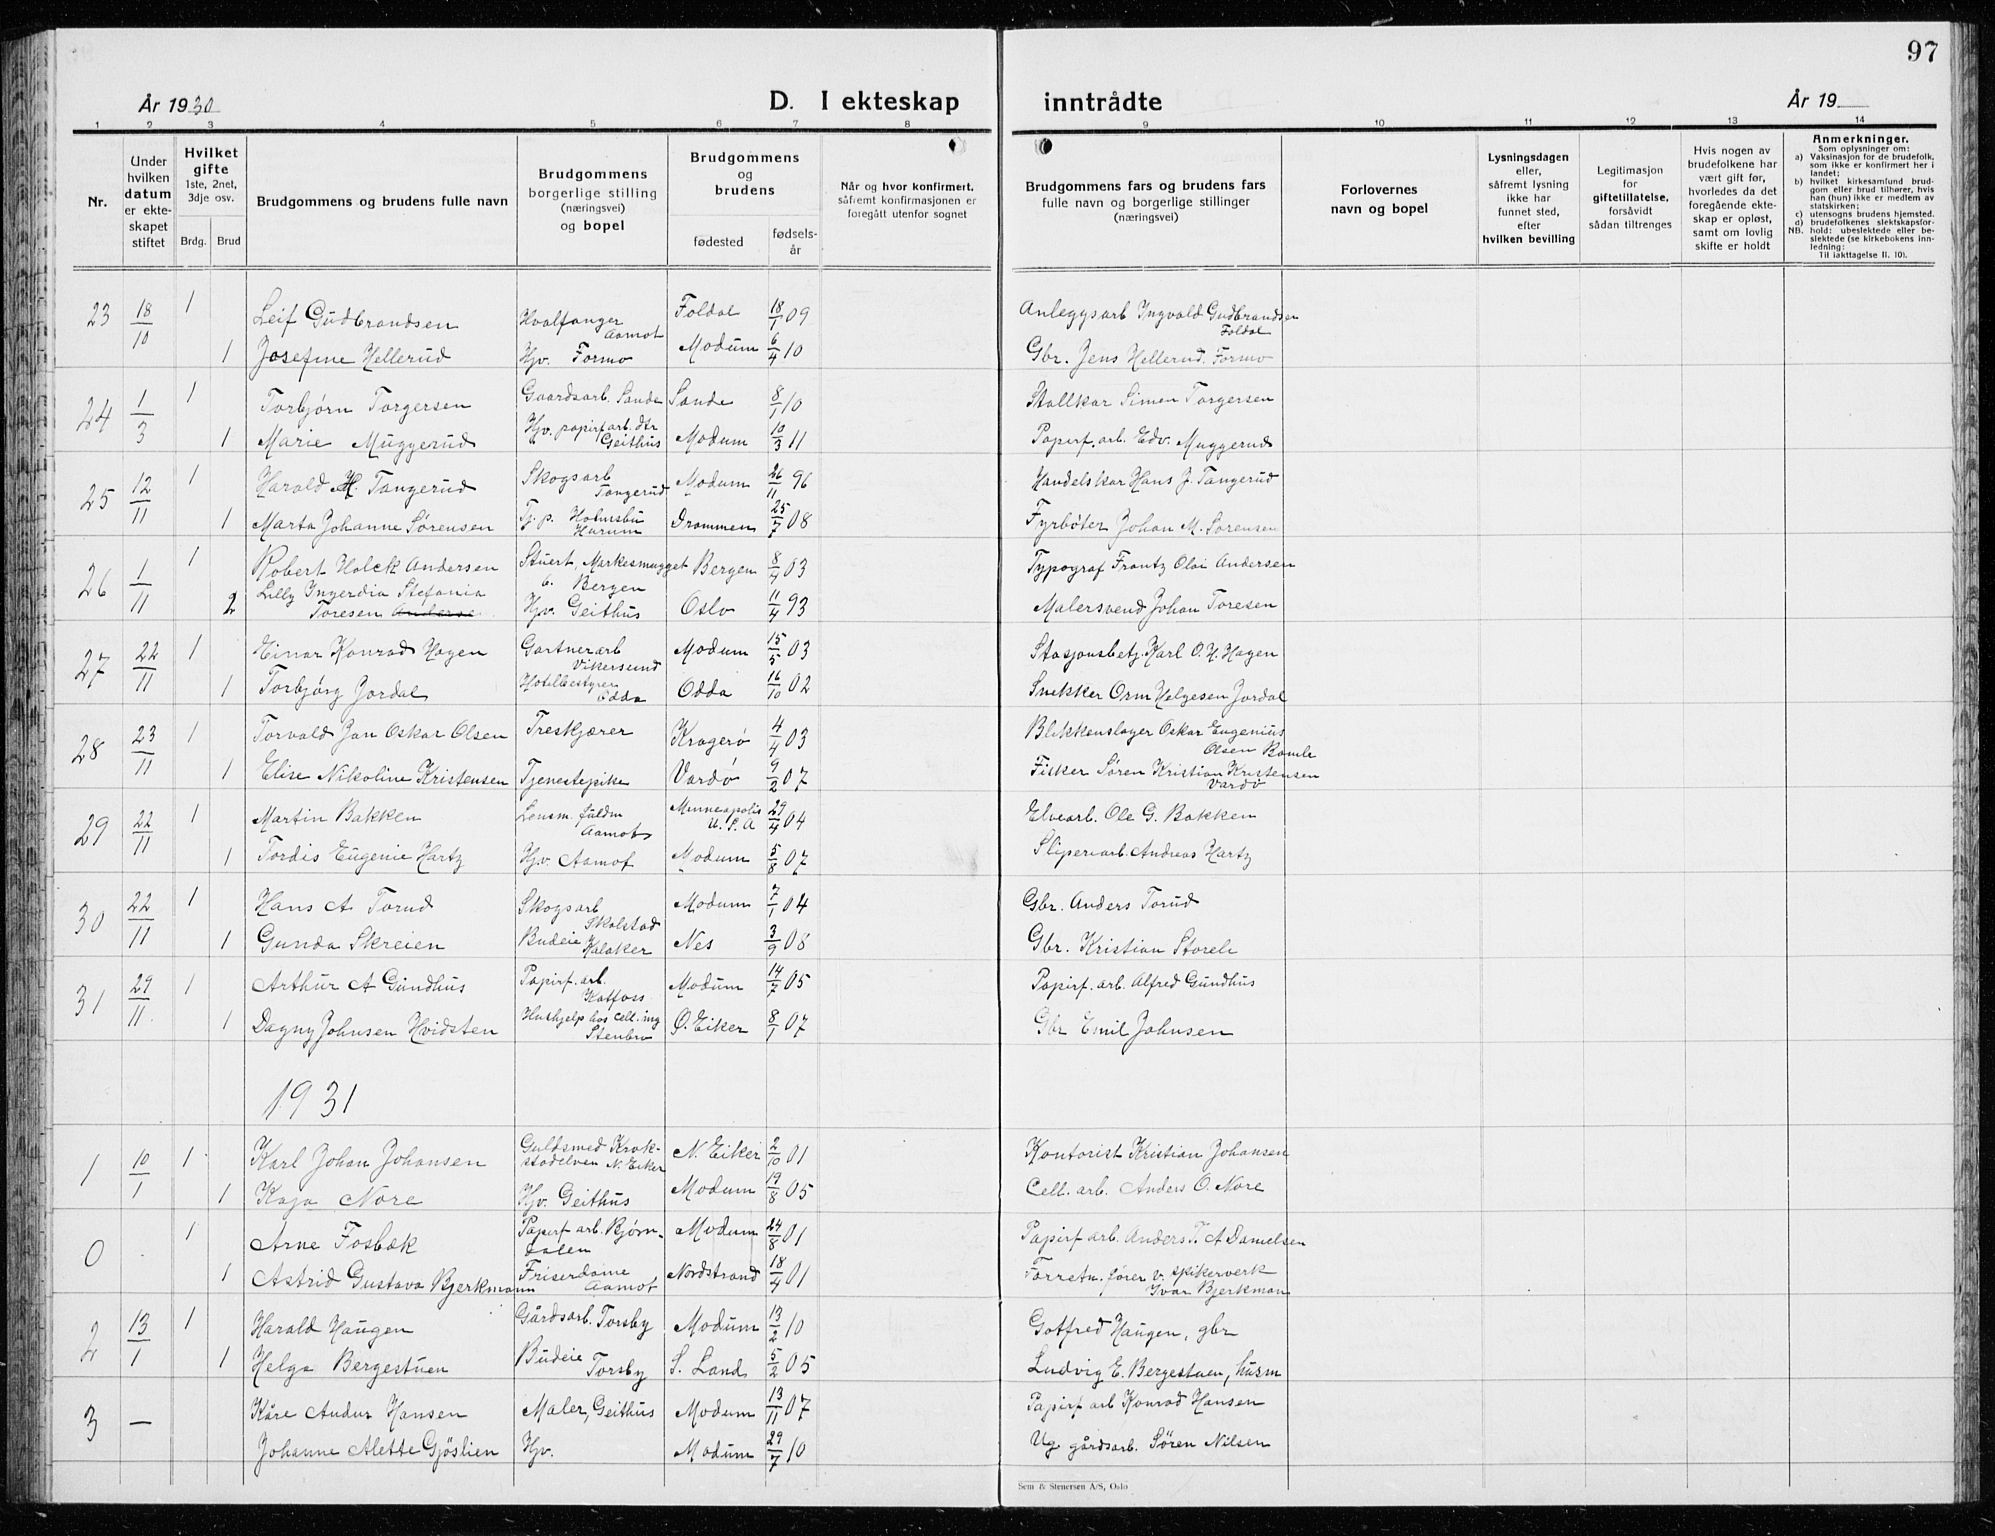 97
År 1930
D. I ekteskap inntrådte
År 19
1 2 3 4 5 6 7 8 9 10 11 12 13 14
Nr.
Under hvilken datum er ekteskapet stiftet
Hvilket gifte 1ste, 2net, 3dje osv.
Brdg. Brud
Brudgommens og brudens fulle navn
Brudgommens borgerlige stilling (næringsvei) og bopel
Brudgommens og brudens
fødested
fødselsår
Når og hvor konfirmert, såfremt konfirmasjonen er foregått utenfor sognet
Brudgommens fars og brudens fars fulle navn og borgerlige stillinger (næringsvei)
Forlovernes navn og bopel
Lysningsdagen eller, såfremt lysning ikke har funnet sted, efter hvilken bevilling
Legitimasjon for giftetillatelse, forsåvidt sådan tiltrenges
Hvis nogen av brudefolkene har vært gift før, hvorledes da det foregående ekteskap er opløst, samt om lovlig skifte er holdt
Anmerkninger.
Som oplysninger om:
a) Vaksinasjon for de brudefolk, som ikke er konfirmert her i landet;
b) hvilket kirkesamfund brudgom eller brud tilhører, hvis han (hun) ikke er medlem av statskirken;
c) utensogns brudens hjemsted.
d) brudefolkenes slektskapsforhold: ubeslektede eller beslektede (se kirkebokens innledning:
NB.
Til iakttagelse II. 10).
23 18/10 1 Leif Gudbrandsen Hvalfanger Aamot Foldal 18/1 09 Anleggsarb Ingvald Gudbrandsen Foldal
1 Josefine Hellerud Hjv. Formo Modum 6/4 10 Gbr. Jens Hellerud. Formo
24 1/3 1 Torbjørn Torgersen Gaardsarb. Sande Sande 8/1 10 Stallkar Simen Torgersen
1 Marie Muggerud Hjv. papirfarb. dtr Geithus Modum 10/3 11 Papirf. arb. Edv. Muggerud
25 12/11 1 Harald H. Tangerud Skogsarb Tangerud Modum 26/11 96 Handelskar Hans J. Tangerud
1 Marta Johanne Sørensen Tj. p. Holmsbu Hurum Drammen 25/7 08 Fyrbøter Johan M. Sørensen
26 1/11 1 Robert Holck Andersen Stuert, Markesmugget 6. Bergen Bergen 8/4 03 Typograf Frantz Olai Andersen
2 Lilly Ingerdia Stefania Toresen Hjv. Geithus Oslo 11/4 93 Malersvend Johan Toresen
27 22/11 1 Einar Konrad Hagen Gartnerarb Vikersund Modum 15/5 03 Stasjonsbetj. Karl O. H. Hagen
1 Torbjørg Jordal Hotellbestyrer Odda Odda 16/10 02 Snekker Orm Helgesen Jordal
28 23/11 1 Torvald Jan Oskar Olsen Treskjærer Kragerø 4/4 03 Blikkenslager Oskar Eugenius Olsen Bamle
1 Elise Nikoline Kristensen Tjenestepike Vardø 9/2 07 Fisker Søren Kristian Kristensen Vardø
29 22/11 1 Martin Bakken Lensm. fuldm Aamot Minneapolis U. S. A 29/4 04 Elvearb. Ole G. Bakken
1 Tordis Eugenie Hartz Hjv. Aamot Modum 5/8 07 Sliperiarb. Andreas Hartz
30 22/11 1 Hans A Torud Skogsarb Skalstad Modum 7/1 04 Gbr. Anders Torud
1 Gunda Skreien Budeie Kalaker Nes 3/9 08 Gbr. Kristian Storeli
31 29/11. 1 Arthur A Gundhus Papirf. arb. Katfoss Modum 14/7 05 Papirf. arb. Alfred Gundhus
1 Dagny Johnsen Hvidsten Hushjelp hos cell. ing Stenbro Ø. Eiker 8/1 07 Gbr Emil Johnsen
1931
1 10/1 1 Karl Johan Johansen Guldsmed Krokstadelven N. Eiker N. Eiker 2/10 01 Kontorist Kristian Johansen
1 Kaja Nore Hjv. Geithus Modum 19/8 05 Cell. arb. Anders O. Nore
0 1 Arne Fosbæk Papirf arb. Bjørndalen Modum 24/8 01 Papirf arb. Anders T. A Danielsen
1 Astrid Gustava Bjerkmann Friserdame Aamot Nordstrand 18/4 01 Forretn. fører v. spikerverk Ivar Bjerkman
2 13/1 1 Harald Haugen Gårdsarb. Torsby Modum 13/2 10 Gotfred Haugen, gbr
1 Helga Bergestuen Budeie Torsby S. Land 5/2 05 Ludvig E. Bergestuen, husm
3 — Kåre Andur Hansen Maler, Geithus Modum 13/11 07 Papirf arb Konrad Hansen
Johanne Alette Gjøslien Hjv. Modum 29/7 10 Ug gårdsarb. Søren Nilsen
Sem & Stenersen A/S, Oslo